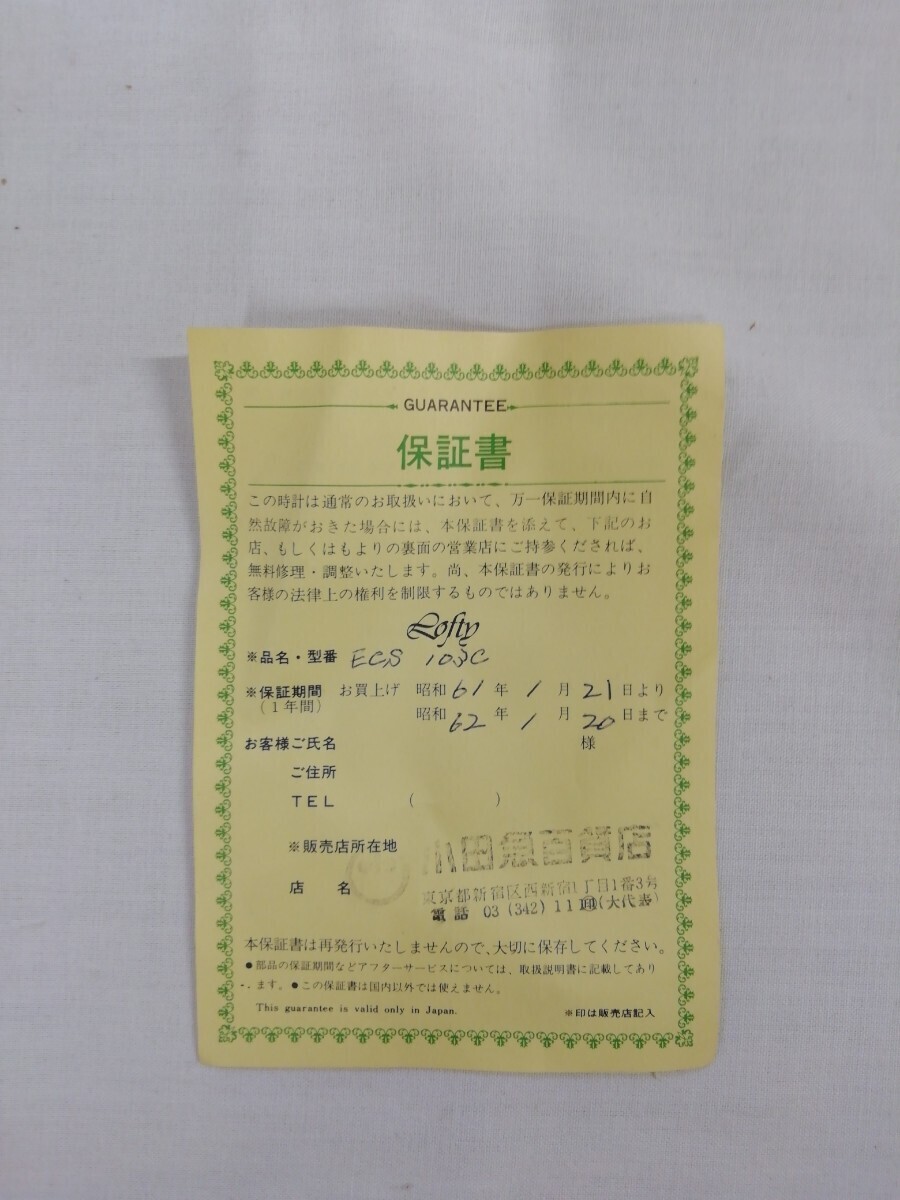 GUARANTEE
保証書
この時計は通常のお取扱いにおいて、万一保証期間内に自
然故障がおきた場合には、本保証書を添えて、下記のお
店、もしくはもよりの裏面の営業店にご持参くだされば、
無料修理・調整いたします。尚、本保証書の発行によりお
客様の法律上の権利を制限するものではありません。
Lofty
※品名・型番 ECS 103C
※保証期間 お買上げ 昭和61年1月21日より
(1年間) 昭和62年1月20日まで
お客様ご氏名 様
ご住所
TEL ( )
※販売店所在地 小田急百貨店
東京都新宿区西新宿1丁目1番3号
店 名
電話 03 (342) 11 (大代表)
本保証書は再発行いたしませんので、大切に保存してください。
●部品の保証期間などアフターサービスについては、取扱説明書に記載してあり
ます。●この保証書は国内以外では使えません。
This guarantee is valid only in Japan.
※印は販売店記入